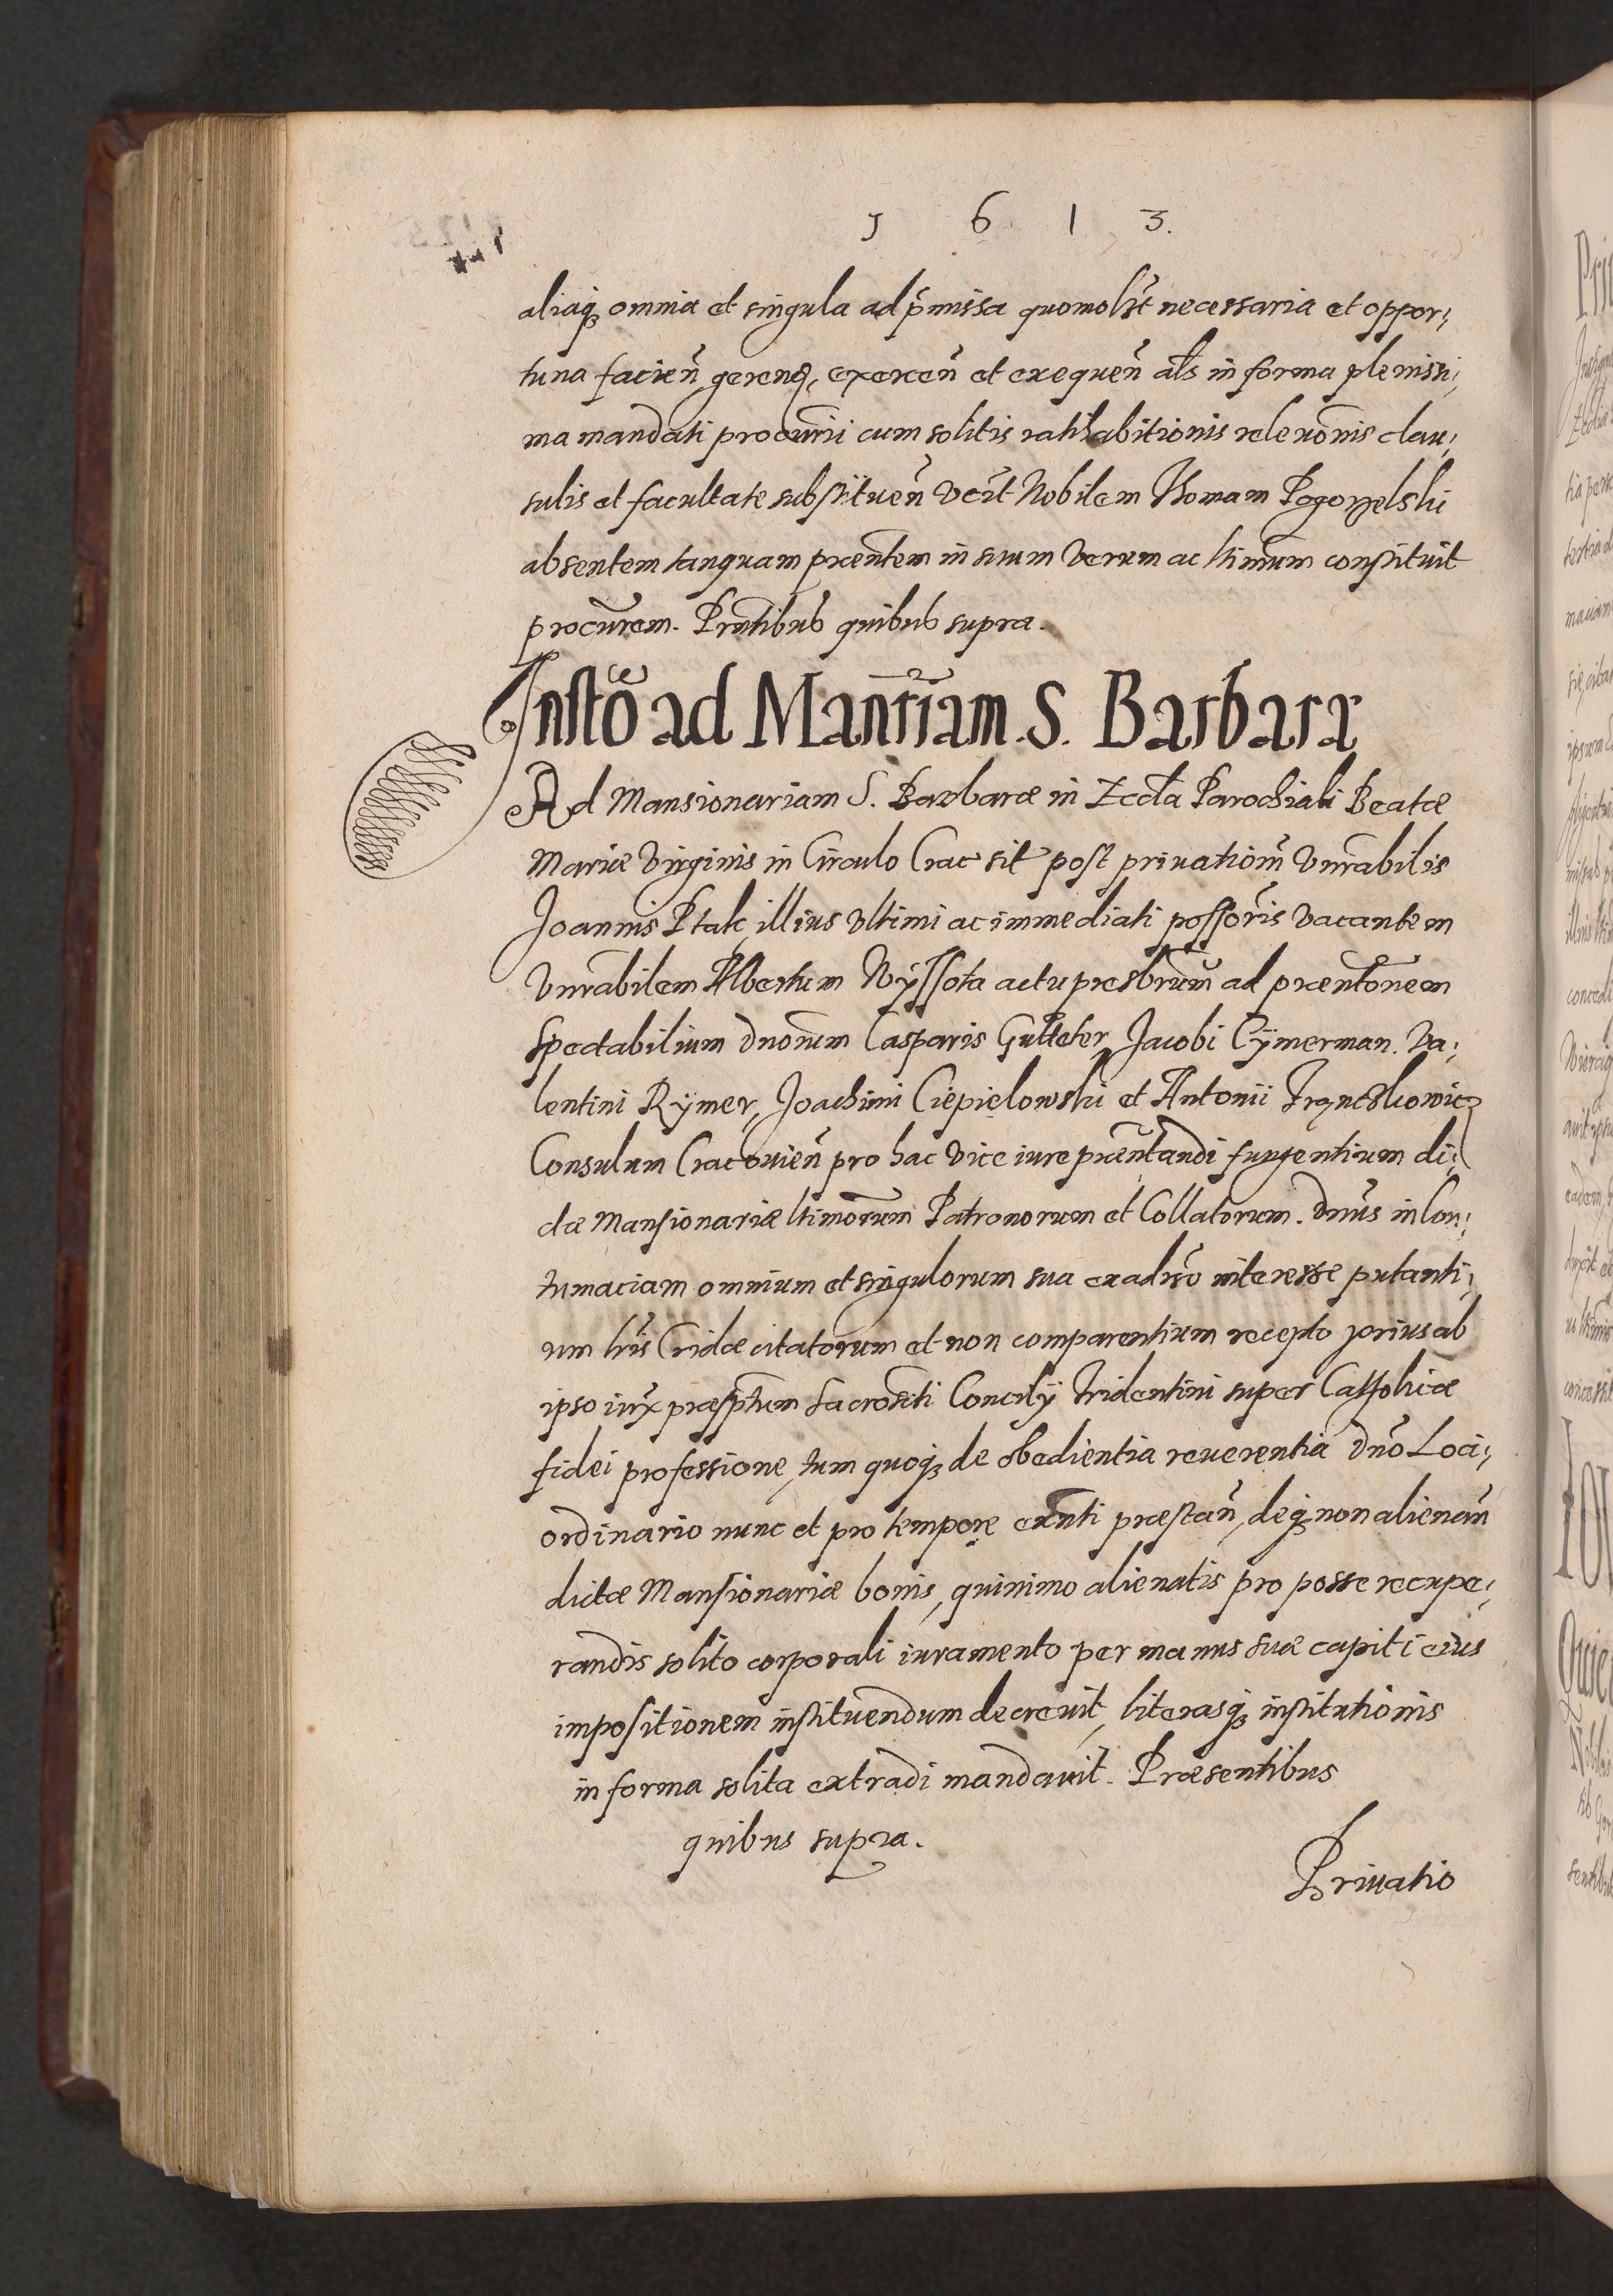 1 6 1 3.
aliaq₃ omnia et singula ad p̃missa quomolt̃ necessaria et oppor;
tuna facien̄ gerenḍ, exercen̄ et exequen̄ al̃s in forma plenissi;
ma mandati procur̃ii cum solitis ratihabitionis releuõnis clau;
sulis et facultate substituen̄ vĩt Nobilem Thomam Pogorzelski
absentem tanquam præñtem in suum verum ac l̃timum constituit
procur̃em. Pr̃ntibus quibus supra.
Insto͂ ad Mañriam S. Barbaræ
Ad Mansionariam S. Barbaræ in Eccl̃a Parochiali Beatæ
Mariæ Virginis in Circulo Crac sit̃ post priuatiom̃ Vnr̃abilis
Joannis Ptak, illius vltimi ac immediati possor̃is vacantem
Vnr̃abilem Albertum Wÿssota actu presbr̃um ad præntõnem
Spectabilium dnorum̃ Casparis Gutteter, Jacobi Cÿmerman. Va;
lentini Rÿmer, Joachimi Ciepielowski et Antonii Franckowicz
Consulum Cracouien̄ pro hac vice iure præñtandi fungentium di;
ctæ Mansionariæ l̃timorum Patronorum et Collatorum. Dnus̃ in Con;
tumaciam omnium et singulorum sua exaduer̃so interesse putanti;
um lr̃is Cridæ citatorum et non comparentium recepto prius ab
ipso iux̃ præsptum̃ Sacrosñti Concilÿ Tridentini super Catholicæ
fidei professione, tum quoq₃ de obedientia reuerentia dno͂ Loci;
ordinario nunc et pro tempore ex̃nti præstan̄, deq₃ non alienan̄
dictæ Mansionariæ bonis, quinimo alienatis pro posse recupe;
randis solito corporali iuramento per manus suæ capiti eius
impositionem instituendum decreuit, literasq₃ institutionis
in forma solita extradi mandauit. Præsentibus
quibus supra.
Priuatio